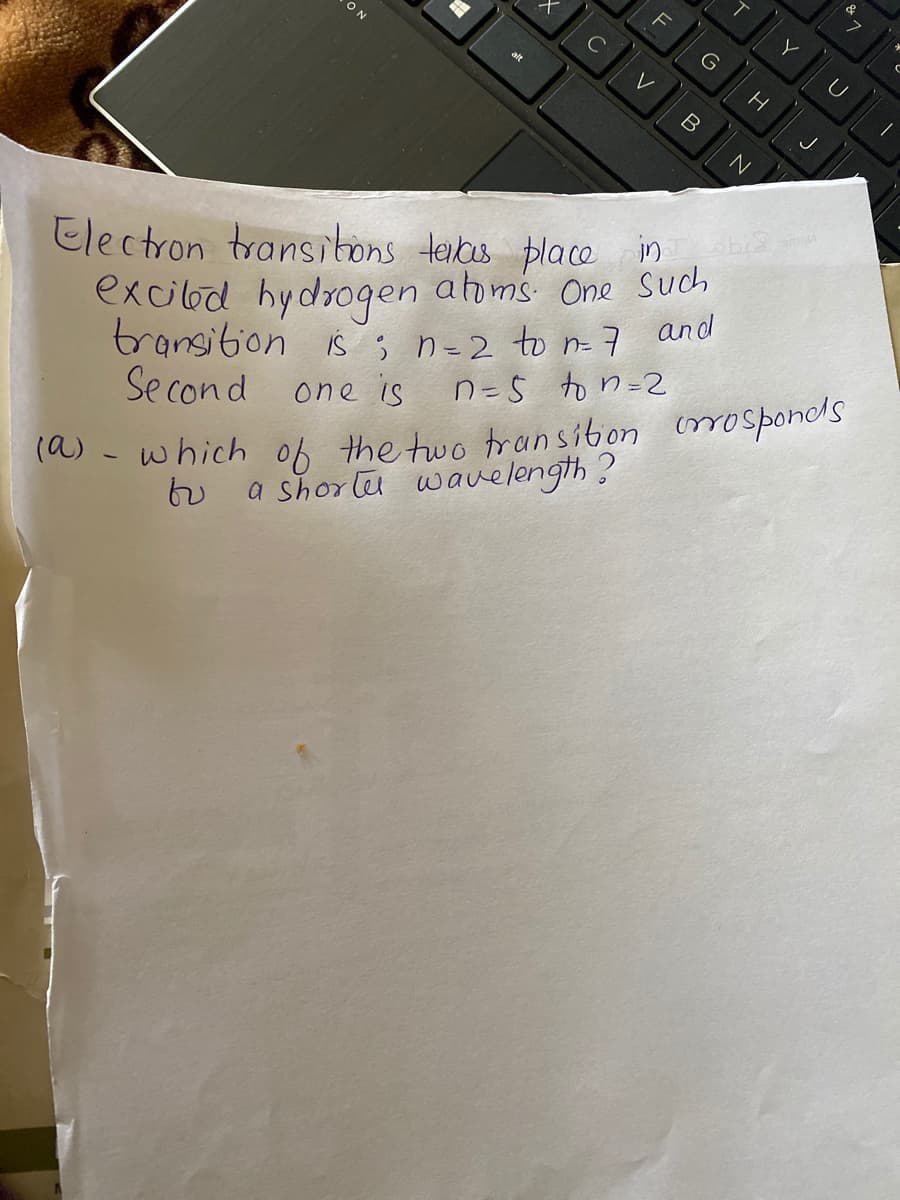 ON
alt
X
C
F
V
G
T
B
H
Y
&
7
N
J
U
Electron transitions takes place in
excited hydrogen atoms. One such
transition is ; n=2 to n=7 and
Second one is n=5 to n=2
(a) - which of the two transition corrosponds
to a shorter wavelength?